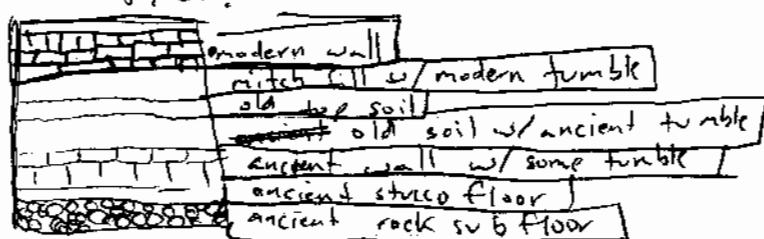 modern wall
mitch fill w/ modern tumble
old top soil
old soil w/ ancient tumble
ancient wall w/ some tumble
ancient stucco floor
ancient rock sub floor